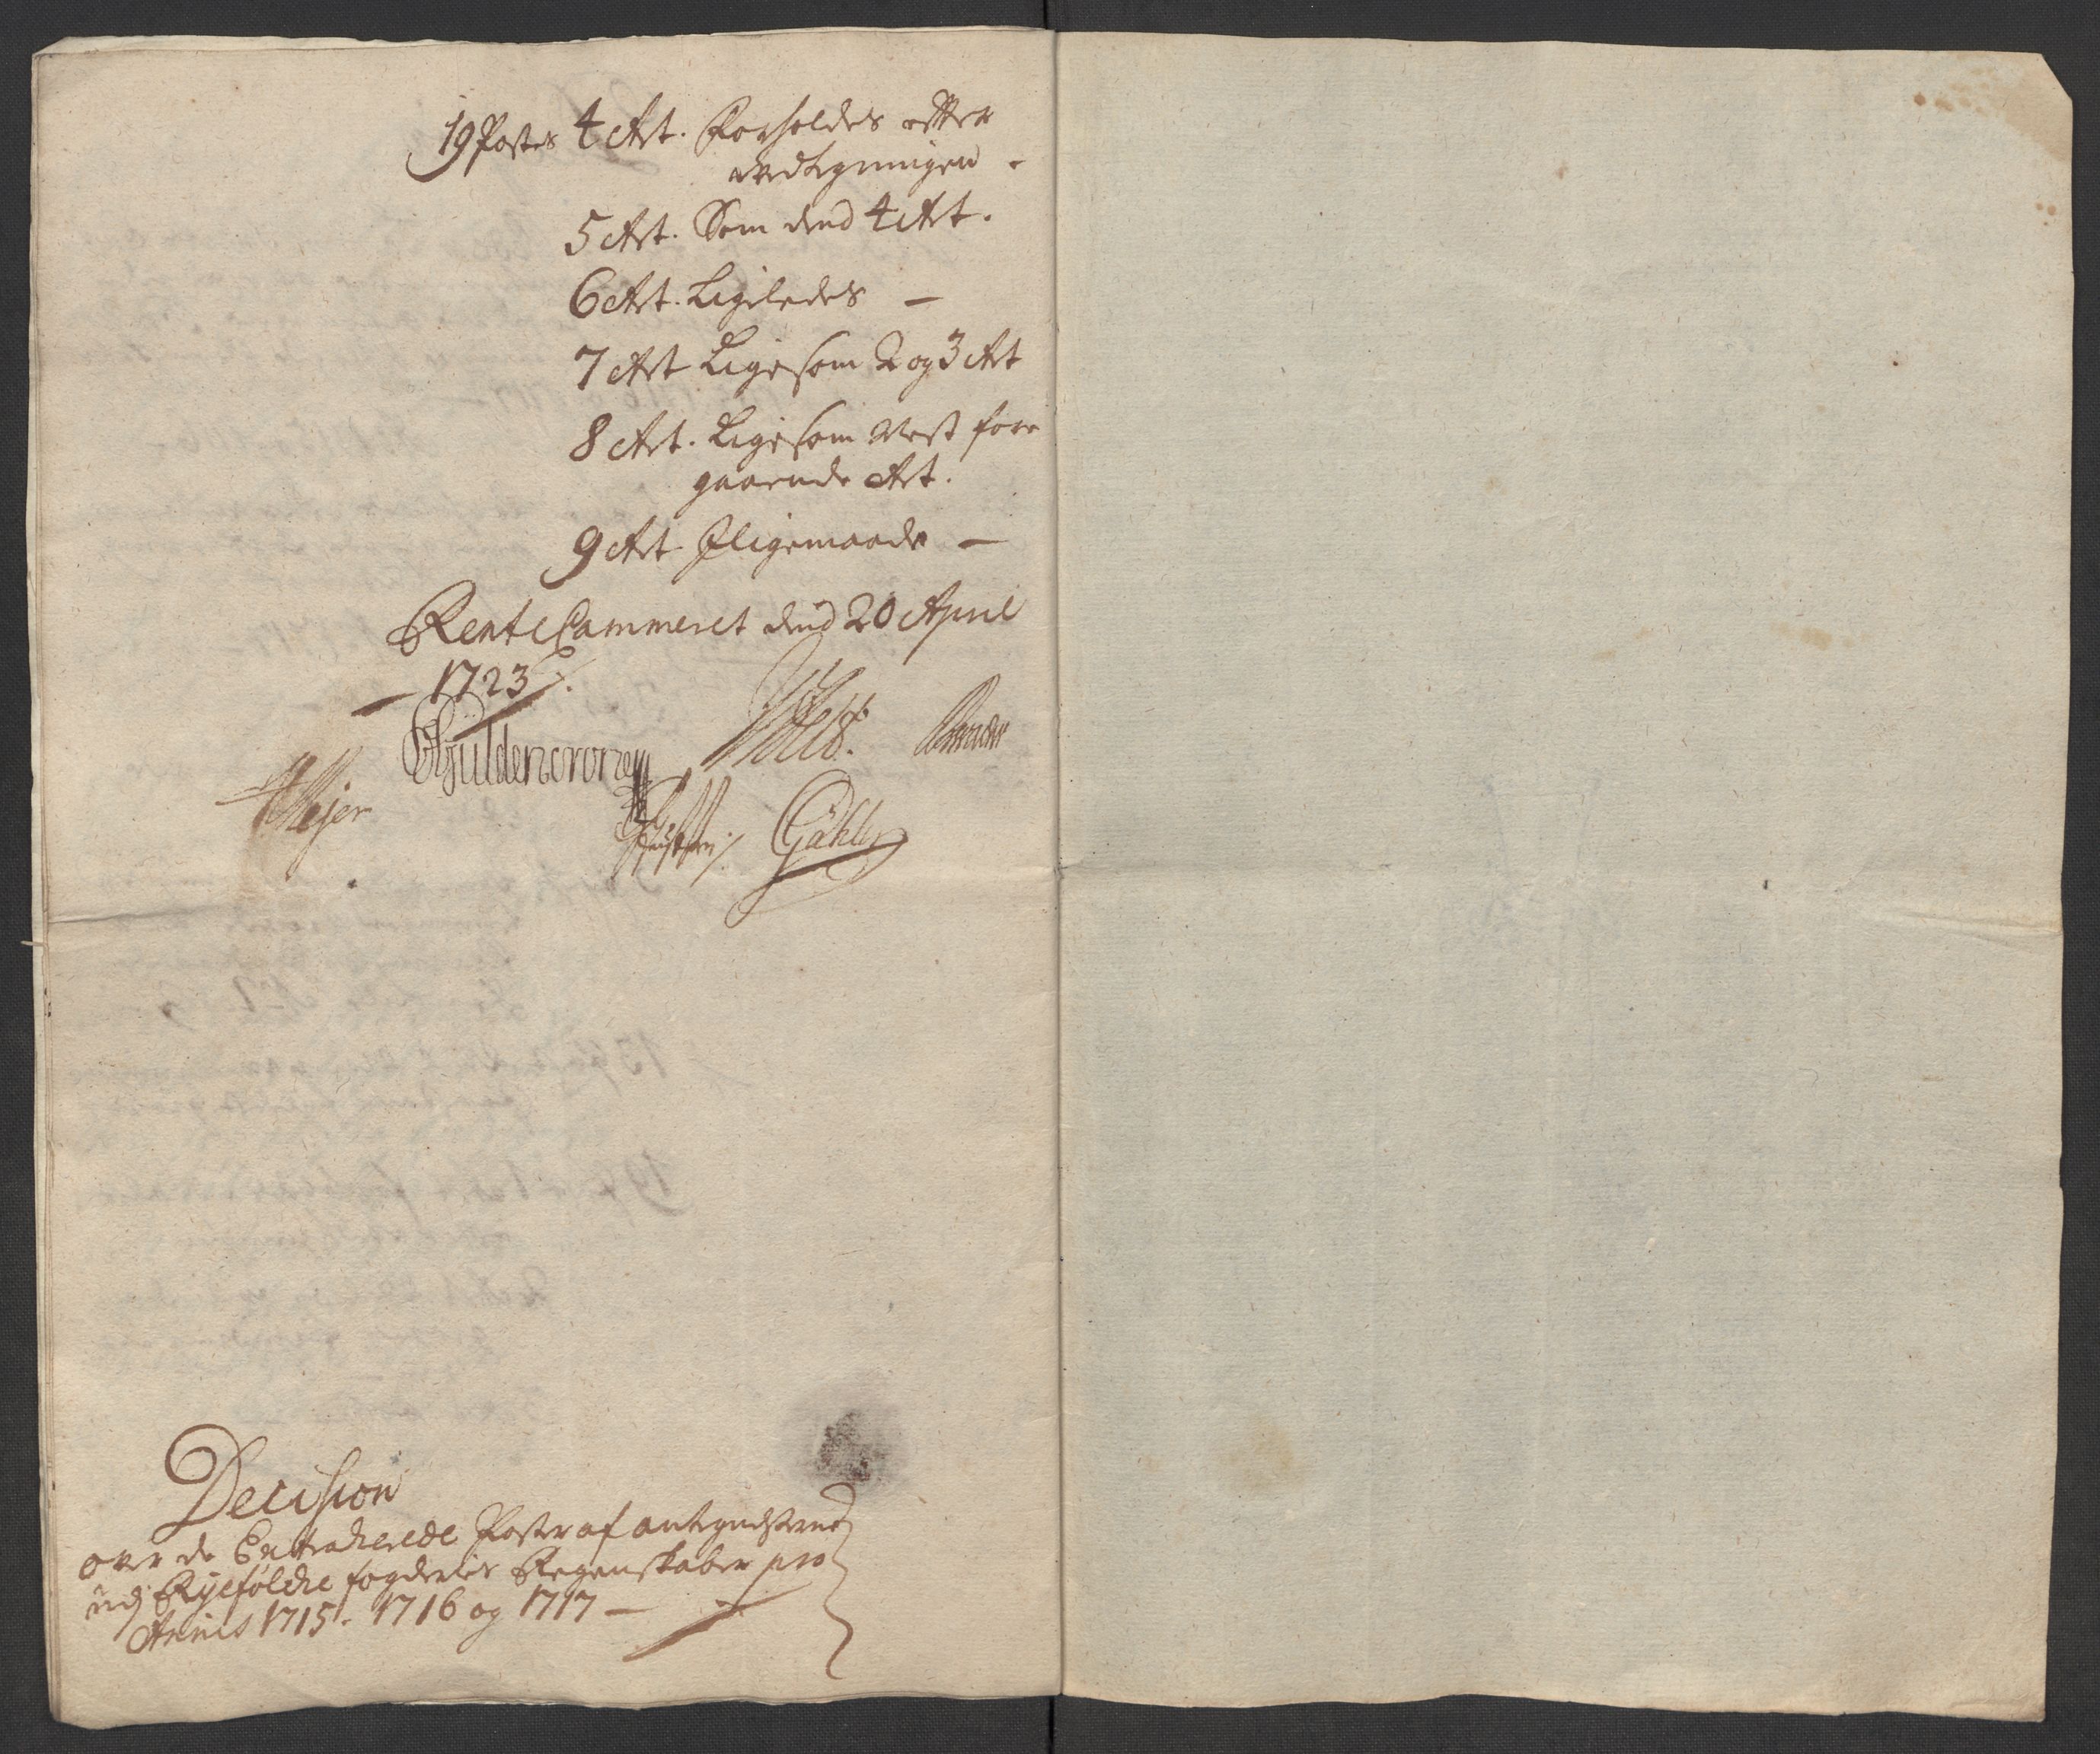 19 Postes 4 Art. Forholdes efter
5 Art. Som dend 4 Art.
6 Art. Ligeledes —
7 Art Ligesom 2 og 3 Art
8 Art. Ligesom Nest fore
gaaende Art.
9 Art. Jligemaade —
Rente Cammeret dend 20 April
1723
Güldencrone
Meyer
Gähler
Decision
over de Extraherede Poster af antegnelserne
udj Ryefölche fogderies Regenskaber pro
Annis 1715. 1716 og 1717 —